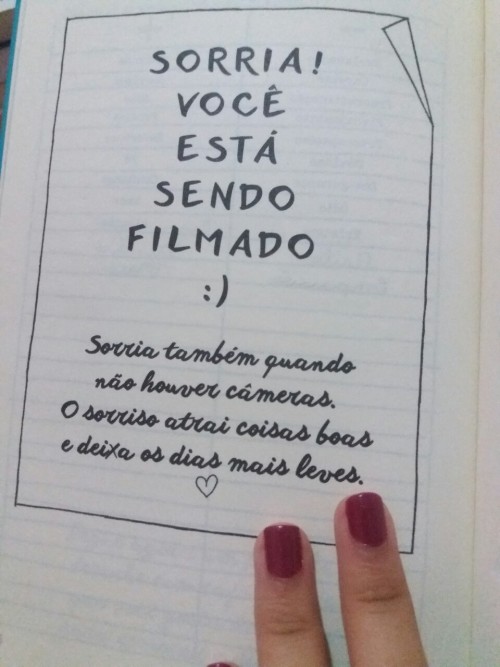 SORRIA!
VOCÊ
ESTÁ
SENDO
FILMADO
:)
Sorria também quando
não houver câmeras.
O sorriso atrai coisas boas
e deixa os dias mais leves.